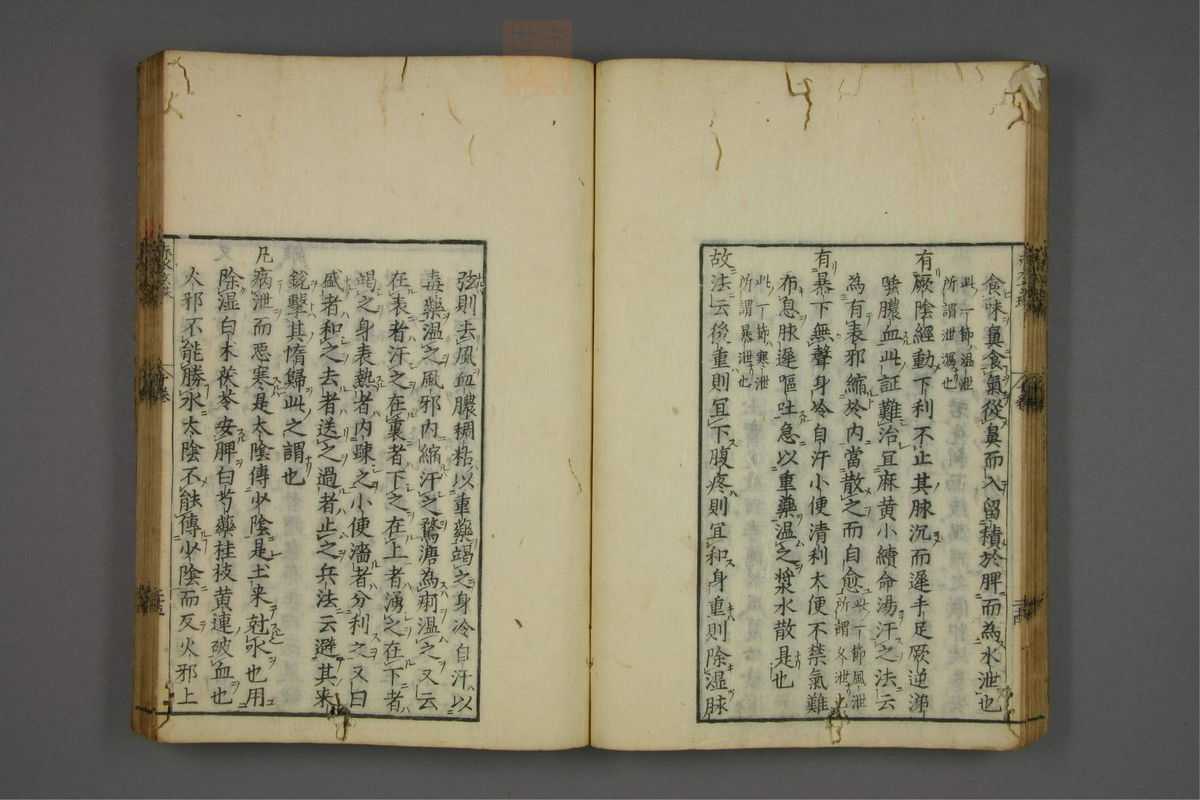 食味鼻食氣從鼻而入留積於脾而為水泄也
此一節温泄
所謂泄瀉也
有厥陰經動下利不止其脉沉而遲手足厥逆涕
唾膿血此証難治宜麻黄小續命湯汗之法云
為有表邪縮於内當散之而自愈此一節風泄所謂冬泄也
有暴下無聲身冷自汗小便清利大便不禁氣難
布息脉遲嘔吐急以重藥温之漿水散是也
此一節寒泄
所謂暴泄也
故法云後重則宜下腹疼則宜和身重則除湿脉
弦則去風血膿稠粘以重藥竭之身冷自汗以
毒藥温之風邪内縮汗之鶩溏為痢温之又云
在表者汗之在裏者下之在上者湧之在下者
竭之身表熱者内踈之小便濇者分利之又曰
盛者和之去者送之過者止之兵法云避其来
銳擊其惰歸此之謂也
凡病泄而悪寒是太陰傳少陰是土来尅水也用
除湿白木茯苓安脾白芍藥桂枝黄連破血也
火邪不能勝水太陰不能傳少陰而反火邪上